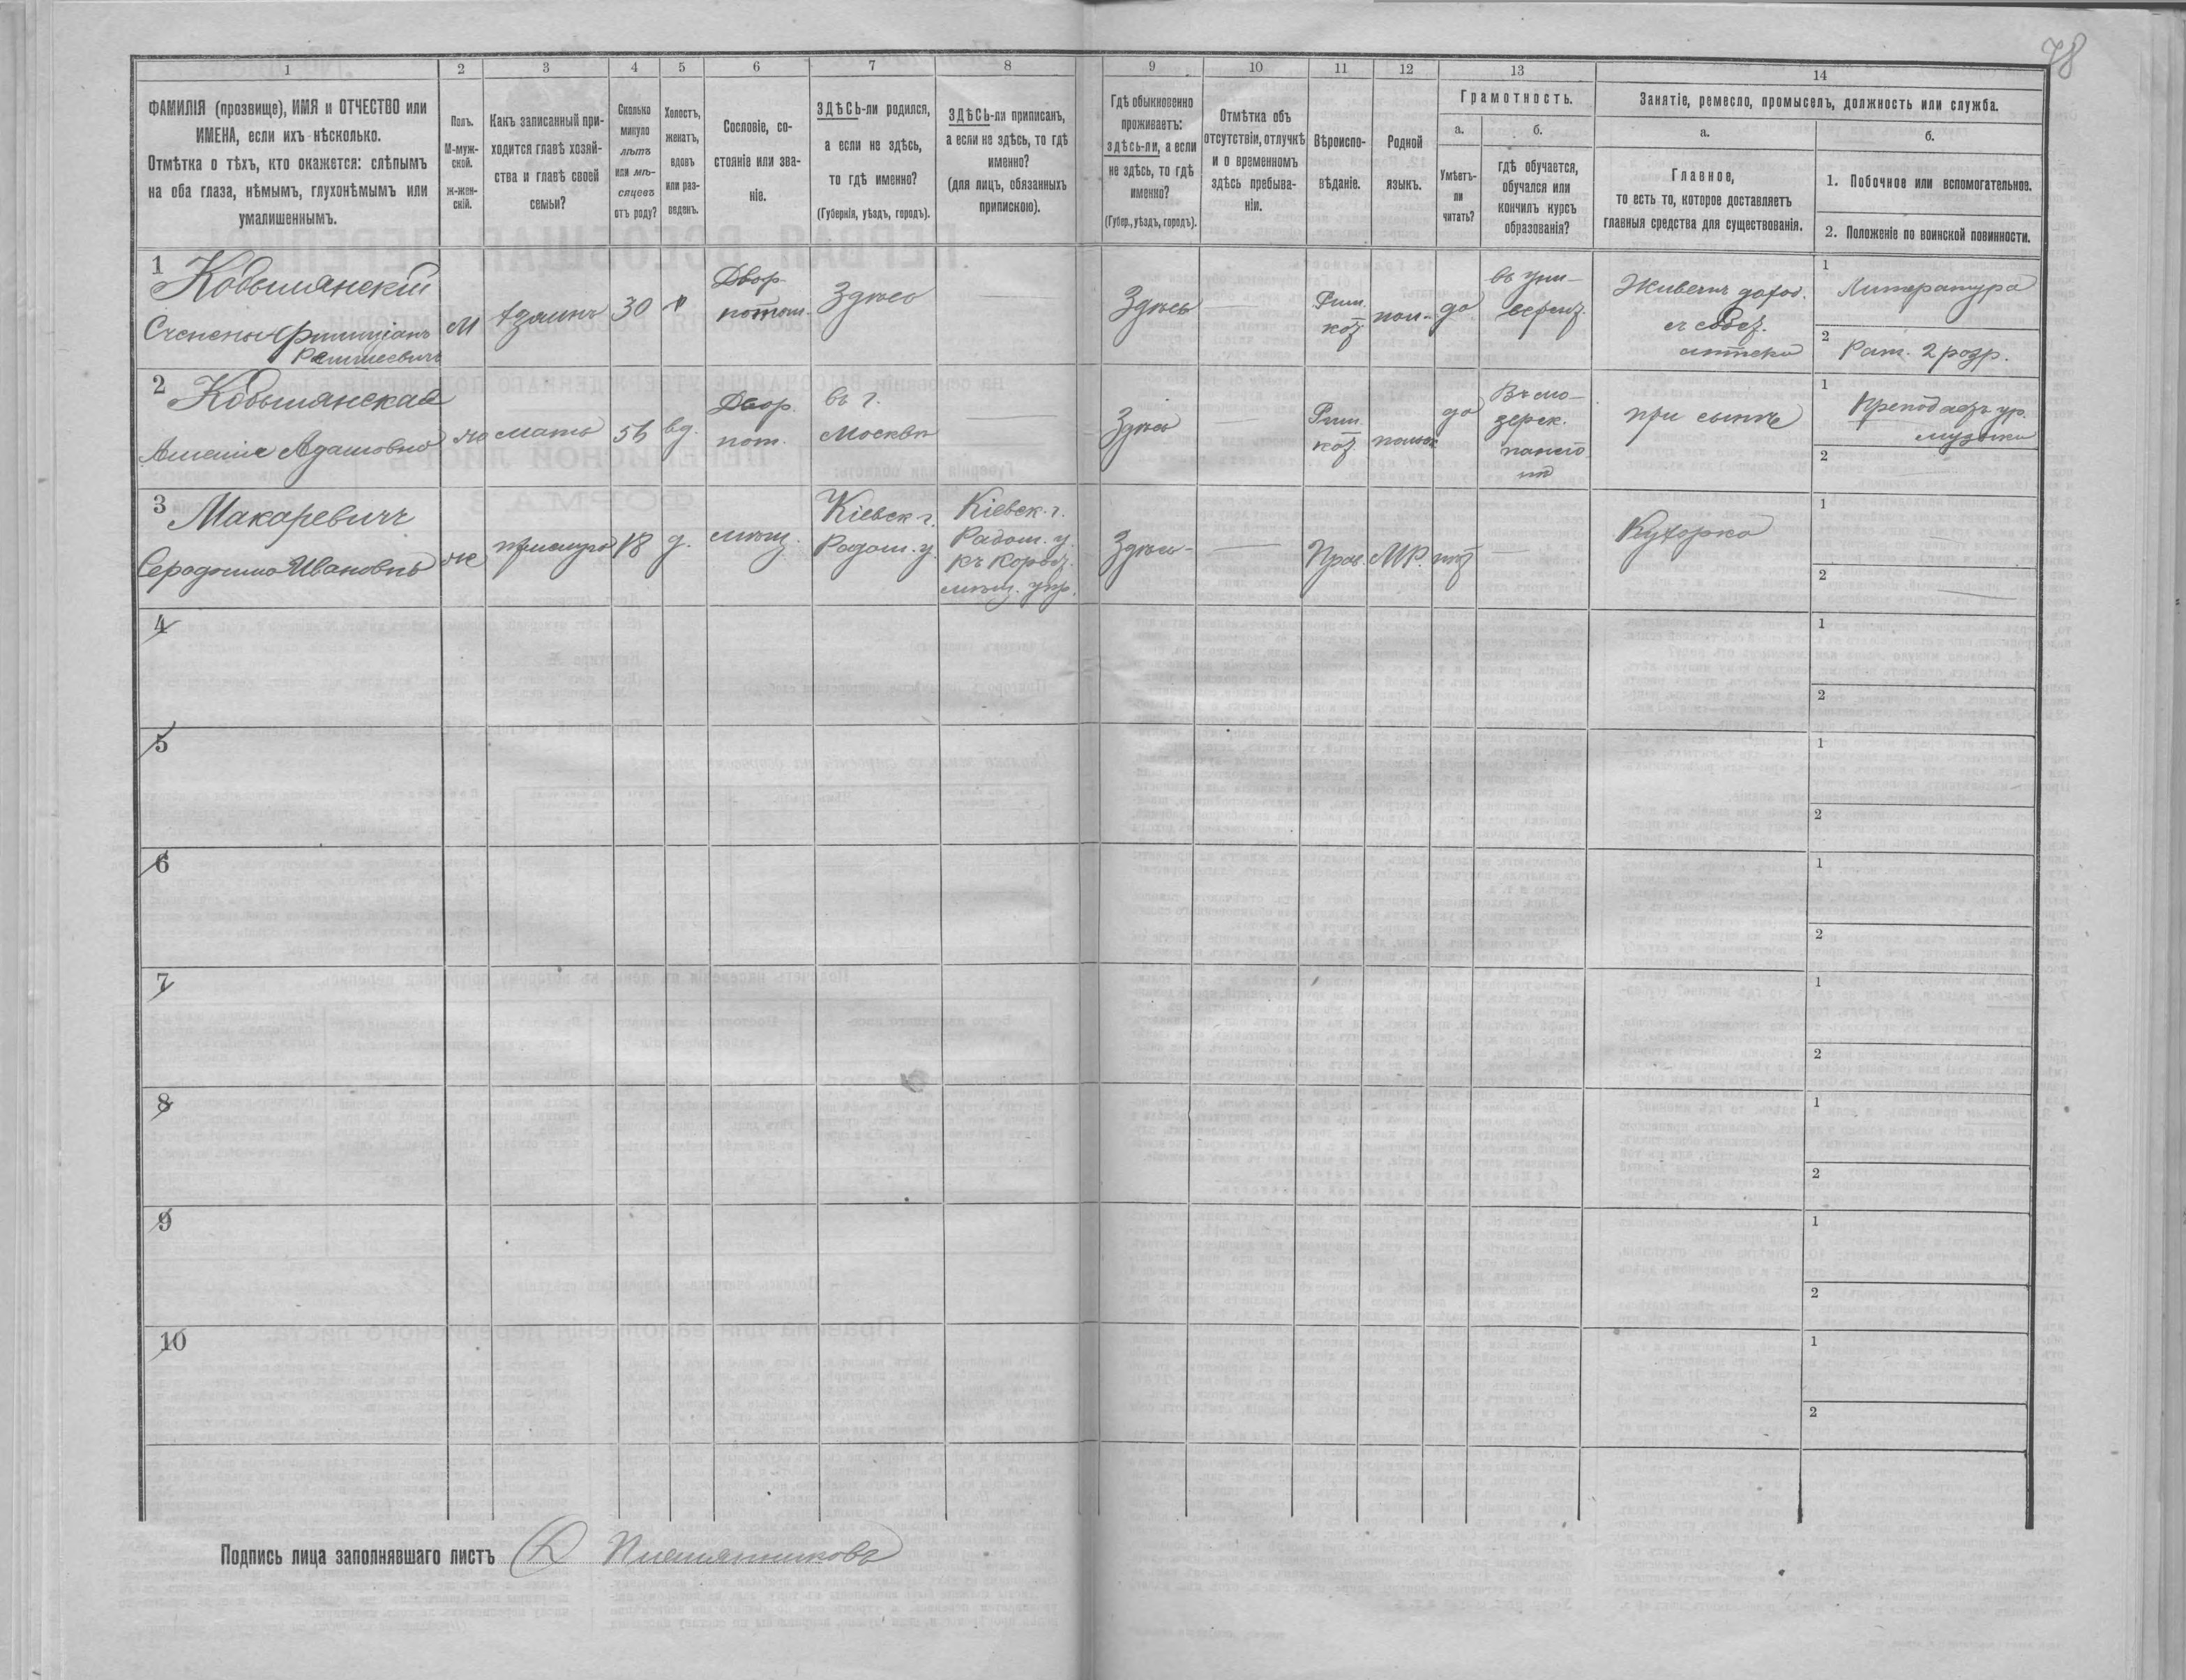 78
1
2
3
4
5
6
7
8
9
10
11
12
13
14
ФАМИЛІЯ (прозвище), ИМЯ и ОТЧЕСТВО или
ИМЕНА, если ихъ нѣсколько.
Отмѣтка о тѣхъ, кто окажется: слѣпымъ
на оба глаза, нѣмымъ, глухонѣмымъ или
умалишеннымъ.
Полъ.
М-муж-
ской.
Ж-жен-
скій.
Какъ записанный при-
ходится главѣ хозяй-
ства и главѣ своей
семьи?
Сколько
минуло
лѣтъ
или мѣ-
сяцевъ
отъ роду?
Холостъ,
женатъ,
вдовъ
или раз-
веденъ.
Сословіе, со-
стояніе или зва-
ніе.
ЗДѢСЬ-ли родился,
а если не здѣсь,
то гдѣ именно?
(Губернія, уѣздъ, городъ).
ЗДѢСЬ-ли приписанъ,
а если не здѣсь, то гдѣ
именно?
(для лицъ, обязанныхъ
припискою).
Гдѣ обыкновенно
проживаетъ:
здѣсь-ли, а если
не здѣсь, то гдѣ
именно?
(Губер., уѣздъ, городъ).
Отмѣтка объ
отсутствіи, отлучкѣ
и о временномъ
здѣсь пребыва-
ніи.
Вѣроиспо-
вѣданіе.
Родной
языкъ.
Грамотность.
а.
Умѣетъ-
ли
читать?
б.
гдѣ обучается,
обучался или
кончилъ курсъ
образованія?
Занятіе, ремесло, промыселъ, должность или служба.
а.
Главное,
то есть то, которое доставляетъ
главныя средства для существованія.
б.
1. Побочное или вспомогательное.
2. Положеніе по воинской повинности.
1
М
30
Двор.
потом.
Здѣсь
Здѣсь
Рим.
кат.
пол.
да
въ уни-
верситет.
Живетъ доход.
1 Литература
2 Рат. 2 разр.
2
Адамовна
ж
мать
вд.
Двор.
пот.
въ г.
Москвѣ
Здѣсь
Рим.
кат.
польск
да
при сынѣ
1
музыки
2
3 Макаревичъ
Ивановна
ж
прислуга
18
д.
мѣщ.
Кіевск. г.
Радом. у.
Кіевск. г.
Радом. у.
мѣщ. упр.
Здѣсь
Прав.
МР.
нѣт
Кухарка
1
2
4
1
2
5
1
2
6
1
2
7
1
2
8
1
2
9
1
2
10
1
2
Подпись лица заполнявшаго листъ